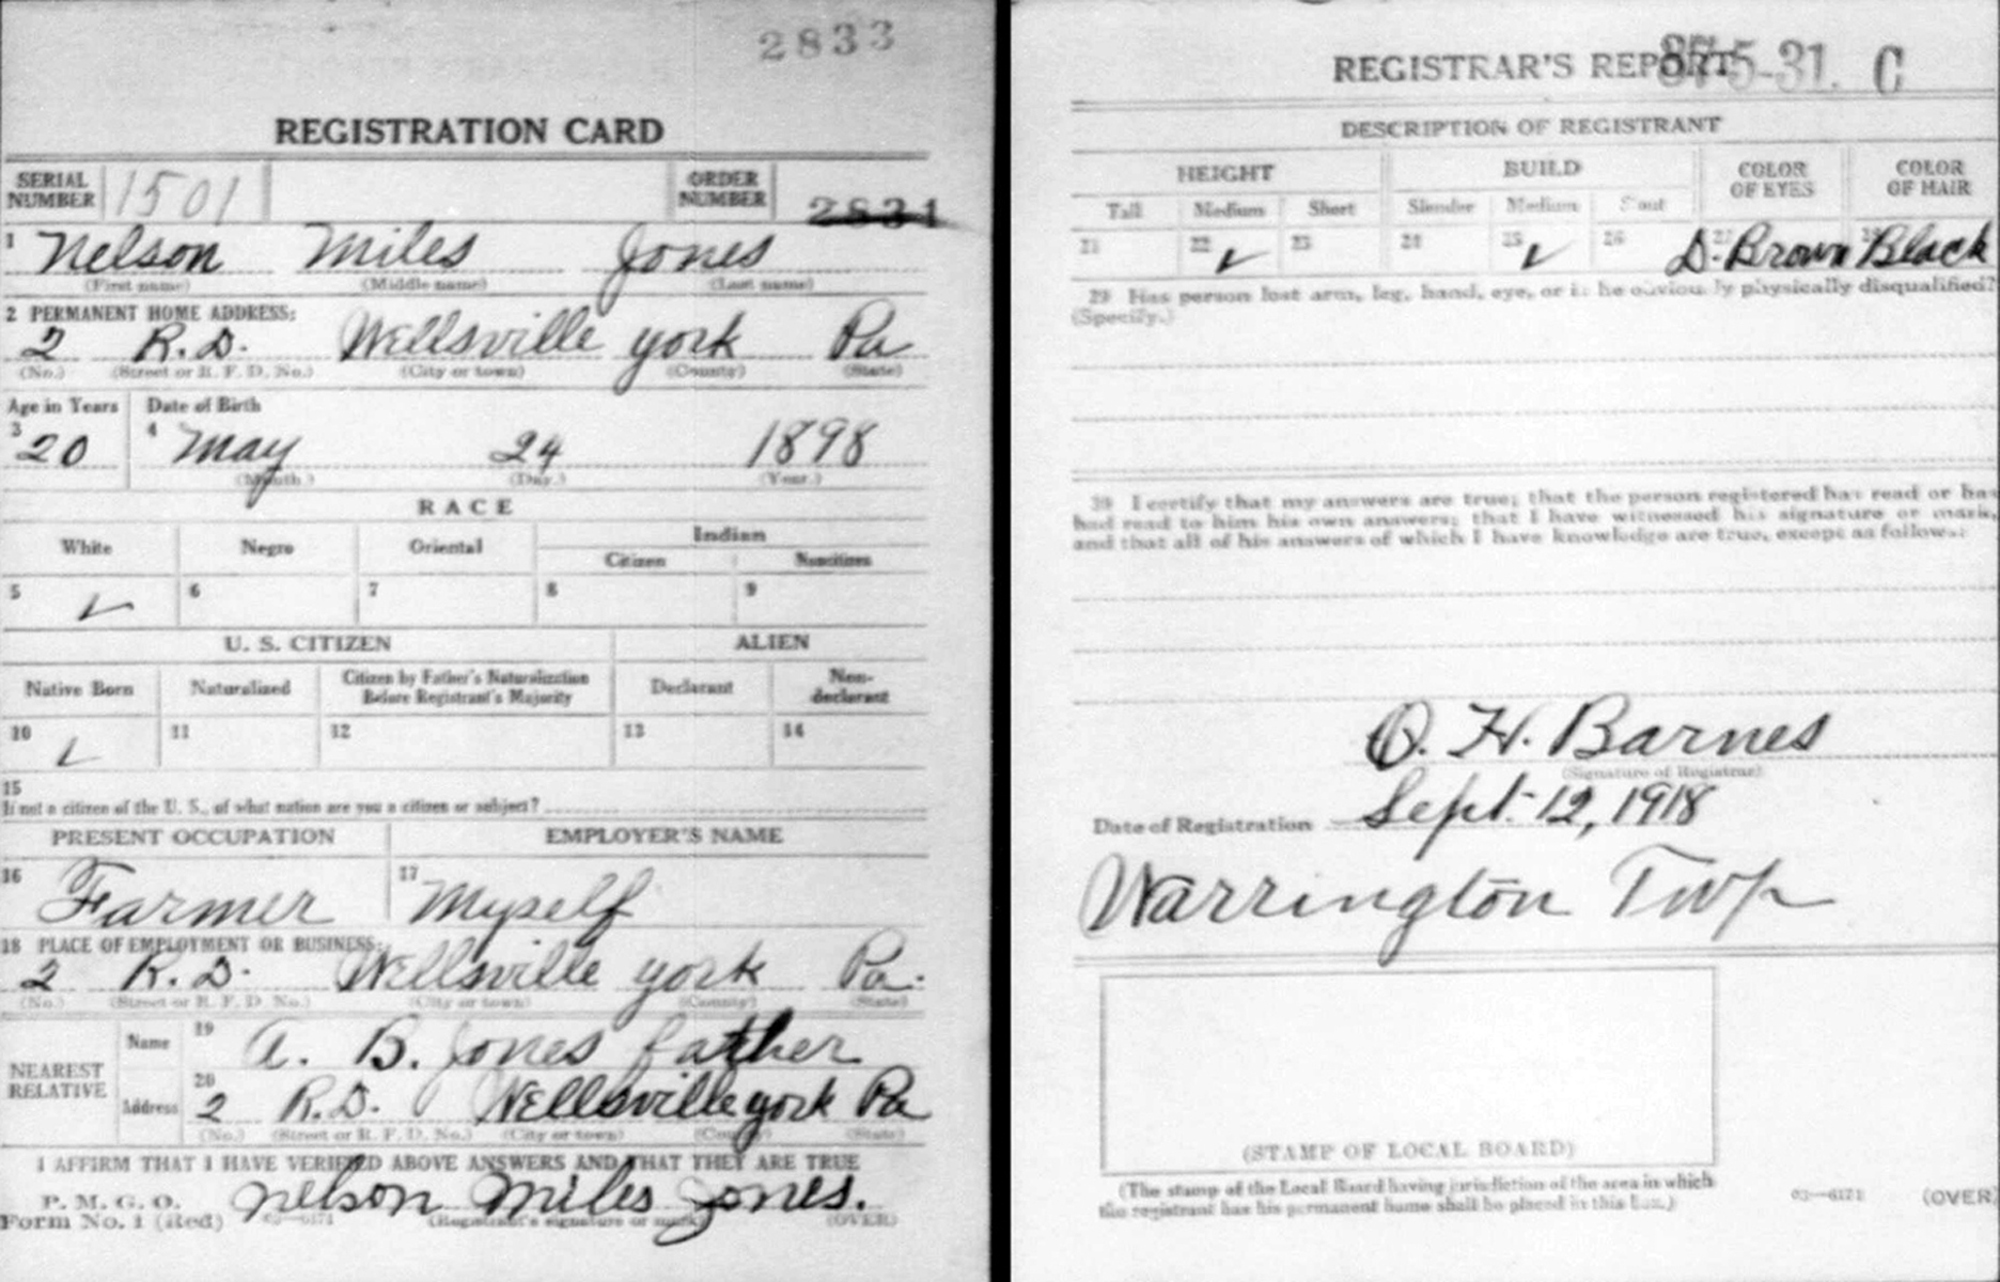 2833
REGISTRATION CARD
SERIAL NUMBER 1501 ORDER NUMBER 2831
1 Nelson Miles Jones
(First name) (Middle name) (Last name)
2 PERMANENT HOME ADDRESS:
2 R.D. Wellsville york Pa
(No.) (Street or R. F. D. No.) (City or town) (County) (State)
Age in Years Date of Birth
3 20 4 May 24 1898
(Month.) (Day.) (Year.)
RACE
White Negro Oriental Indian
Citizen Noncitizen
5 ✓ 6 7 8 9
U. S. CITIZEN ALIEN
Native Born Naturalized Citizen by Father's Naturalization Before Registrant's Majority Declarant Non-declarant
10 ✓ 11 12 13 14
15
If not a citizen of the U. S., of what nation are you a citizen or subject?
PRESENT OCCUPATION EMPLOYER'S NAME
16 Farmer 17 Myself
18 PLACE OF EMPLOYMENT OR BUSINESS:
2 R.D. Wellsville york Pa.
(No.) (Street or R. F. D. No.) (City or town) (County) (State)
NEAREST RELATIVE
Name 19 A. B. Jones father
Address 20 2 R.D. Wellsville york Pa
(No.) (Street or R. F. D. No.) (City or town) (County) (State)
I AFFIRM THAT I HAVE VERIFIED ABOVE ANSWERS AND THAT THEY ARE TRUE
P. M. G. O.
Form No. 1 (Red) 03—6171 Nelson Miles Jones.
(Registrant's signature or mark) (OVER)
REGISTRAR'S REPORT 37-5-31. C
DESCRIPTION OF REGISTRANT
HEIGHT BUILD COLOR OF EYES COLOR OF HAIR
Tall Medium Short Slender Medium Stout
21 22 ✓ 23 24 25 ✓ 26 27 D. Brown 28 Black
29 Has person lost arm, leg, hand, eye, or is he obviously physically disqualified?
(Specify.)
30 I certify that my answers are true; that the person registered has read or has
had read to him his own answers; that I have witnessed his signature or mark,
and that all of his answers of which I have knowledge are true, except as follows:
O. H. Barnes
(Signature of Registrar)
Date of Registration Sept. 12, 1918
Warrington Twp
(STAMP OF LOCAL BOARD)
(The stamp of the Local Board having jurisdiction of the area in which
the registrant has his permanent home shall be placed in this box.)
03—6171 (OVER)